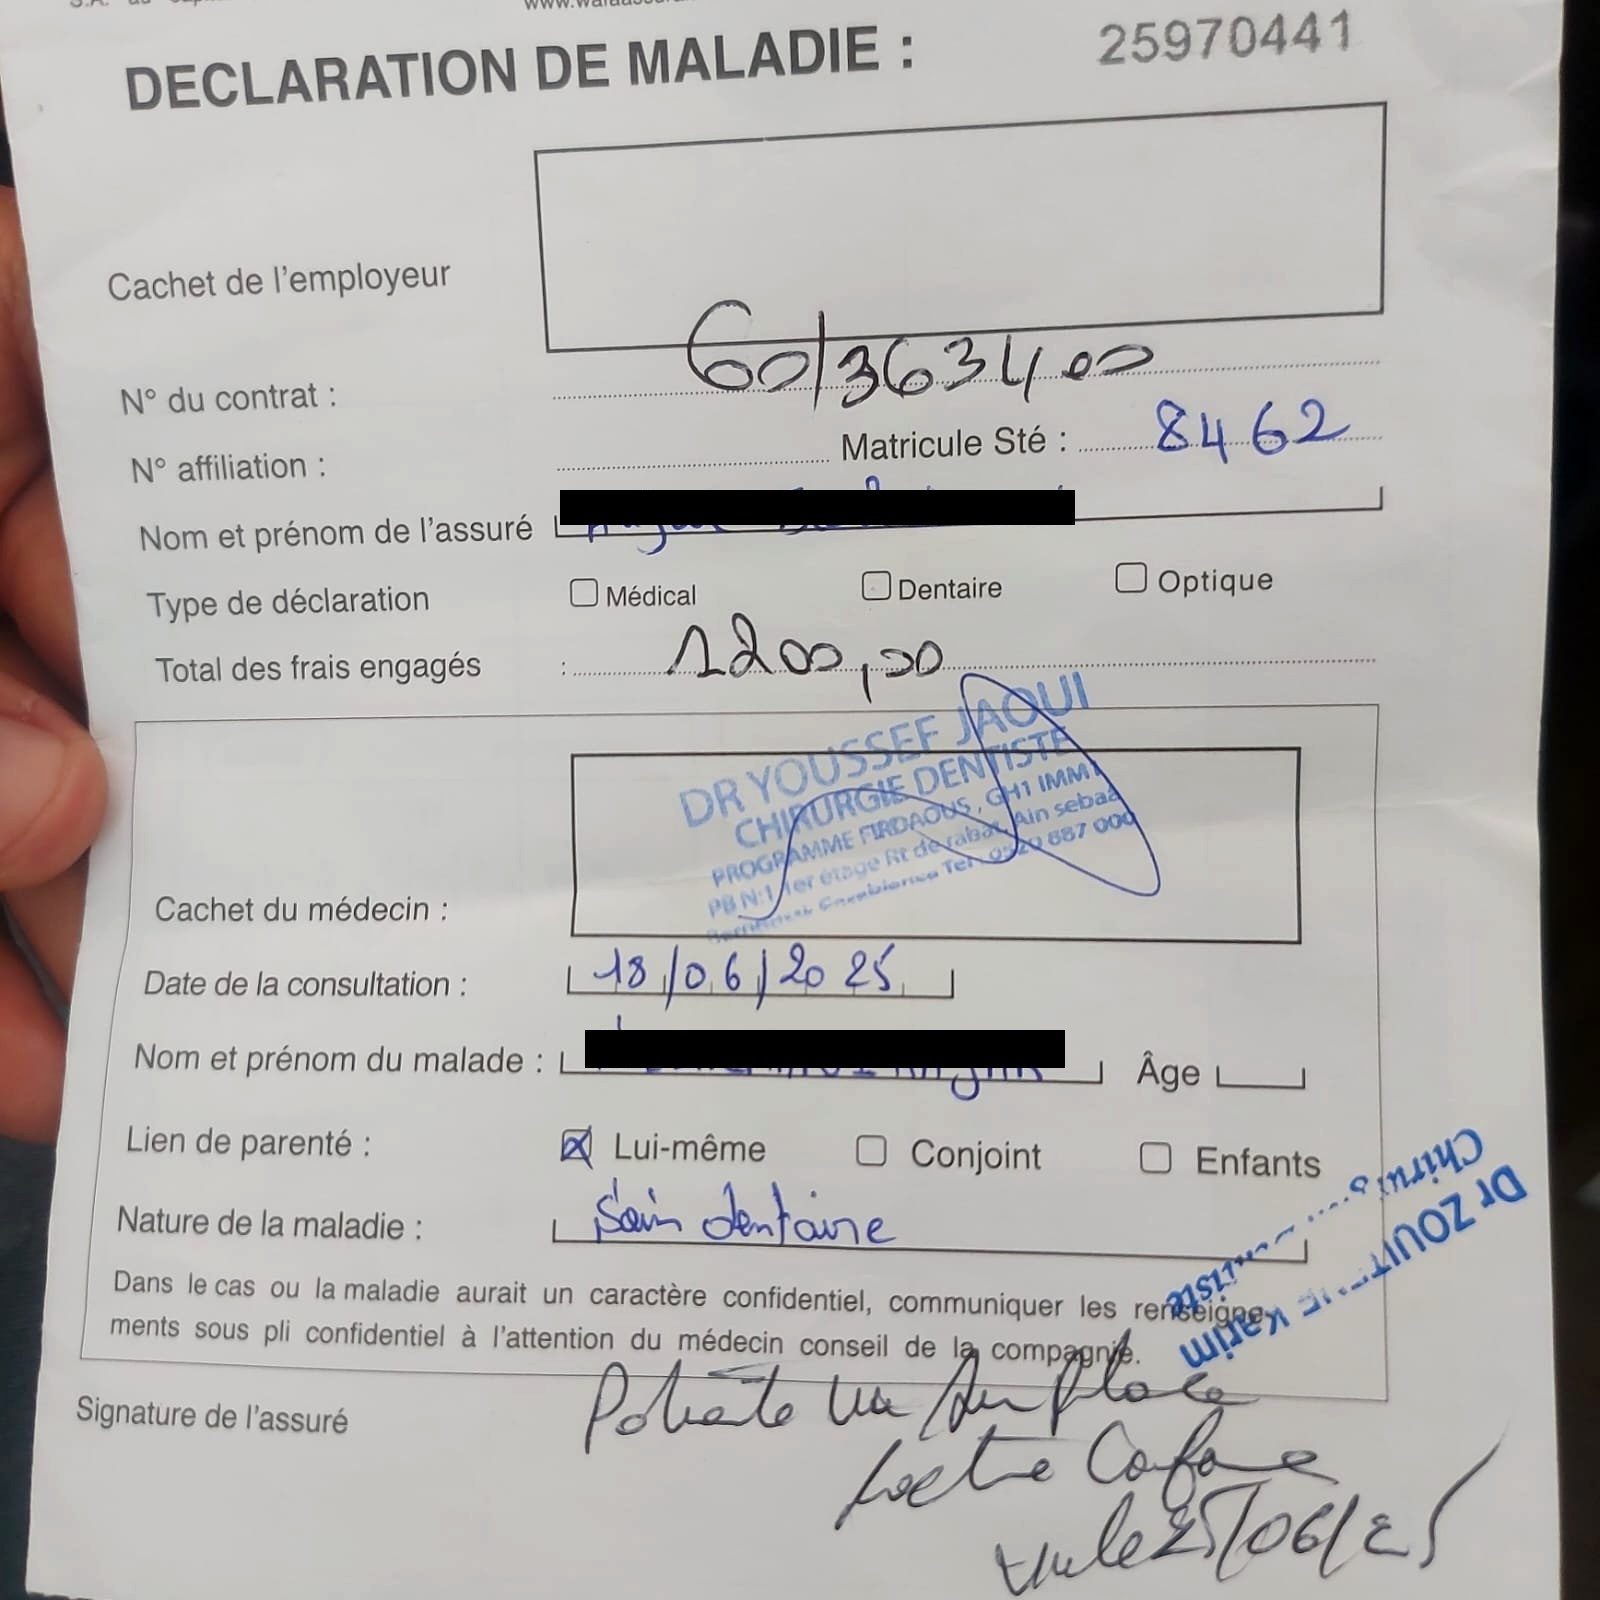 DECLARATION DE MALADIE :
25970441
Cachet de l'employeur
N° du contrat : 60/363400
N° affiliation : Matricule Sté : 8462
Nom et prénom de l'assuré
Type de déclaration Médical Dentaire Optique
Total des frais engagés : 1200,00
DR YOUSSEF JAOUI
CHIRURGIE DENTISTE
PROGRAMME FIRDAOUS, GH1 IMM1
PB N:1 1er étage Rt de rabat, Ain sebaa
Casablanca Tel: 0520 887 000
Cachet du médecin :
Date de la consultation : 18/06/2025
Nom et prénom du malade : Âge
Lien de parenté : Lui-même Conjoint Enfants
Nature de la maladie : Soin dentaire
Dans le cas ou la maladie aurait un caractère confidentiel, communiquer les renseigne-
ments sous pli confidentiel à l'attention du médecin conseil de la compagnie.
Dr Karim
Signature de l'assuré
25/06/25